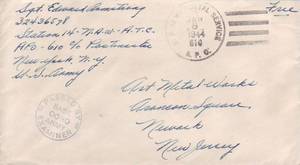 Sgt. Edward Armstrong
32436578
Free
Station 14 - N.A.W - A.T.C.
APO - 610 c/o Postmaster
New York, N.Y.
U.S. Army
POSTAL SERVICE
1944
610
A.P.O.
Art Metal Works
Aronson Square,
Newark
New Jersey
PASSED BY
ARMY
EXAMINER